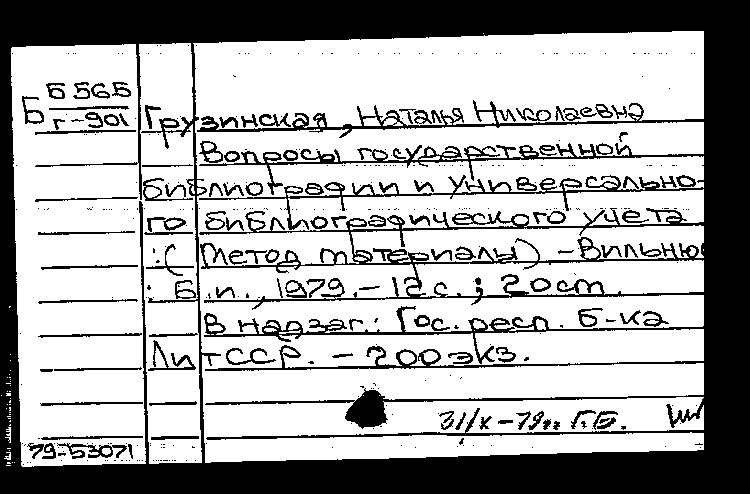 Б 565
Б Г-901
Грузинская, Наталья Николаевна
Вопросы государственной
библиографии и универсально-
го библиографического учета
: (Метод материалы) . - Вильнюс
: Б.и., 1979. - 12 с. ; 20 см.
В надзаг.: Гос. респ. б-ка
ЛитССР. - 200 экз.
31/X - 79 Г.Б.
79-53071